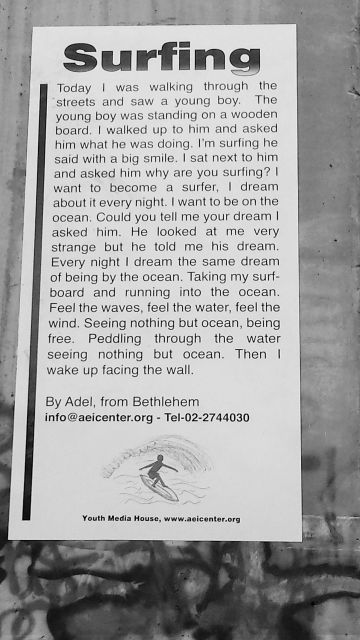 Surfing
Today I was walking through the
streets and saw a young boy. The
young boy was standing on a wooden
board. I walked up to him and asked
him what he was doing. I'm surfing he
said with a big smile. I sat next to him
and asked him why are you surfing? I
want to become a surfer, I dream
about it every night. I want to be on the
ocean. Could you tell me your dream I
asked him. He looked at me very
strange but he told me his dream.
Every night I dream the same dream
of being by the ocean. Taking my surf-
board and running into the ocean.
Feel the waves, feel the water, feel the
wind. Seeing nothing but ocean, being
free. Peddling through the water
seeing nothing but ocean. Then I
wake up facing the wall.
By Adel, from Bethlehem
info@aeicenter.org - Tel-02-2744030
Youth Media House, www.aeicenter.org